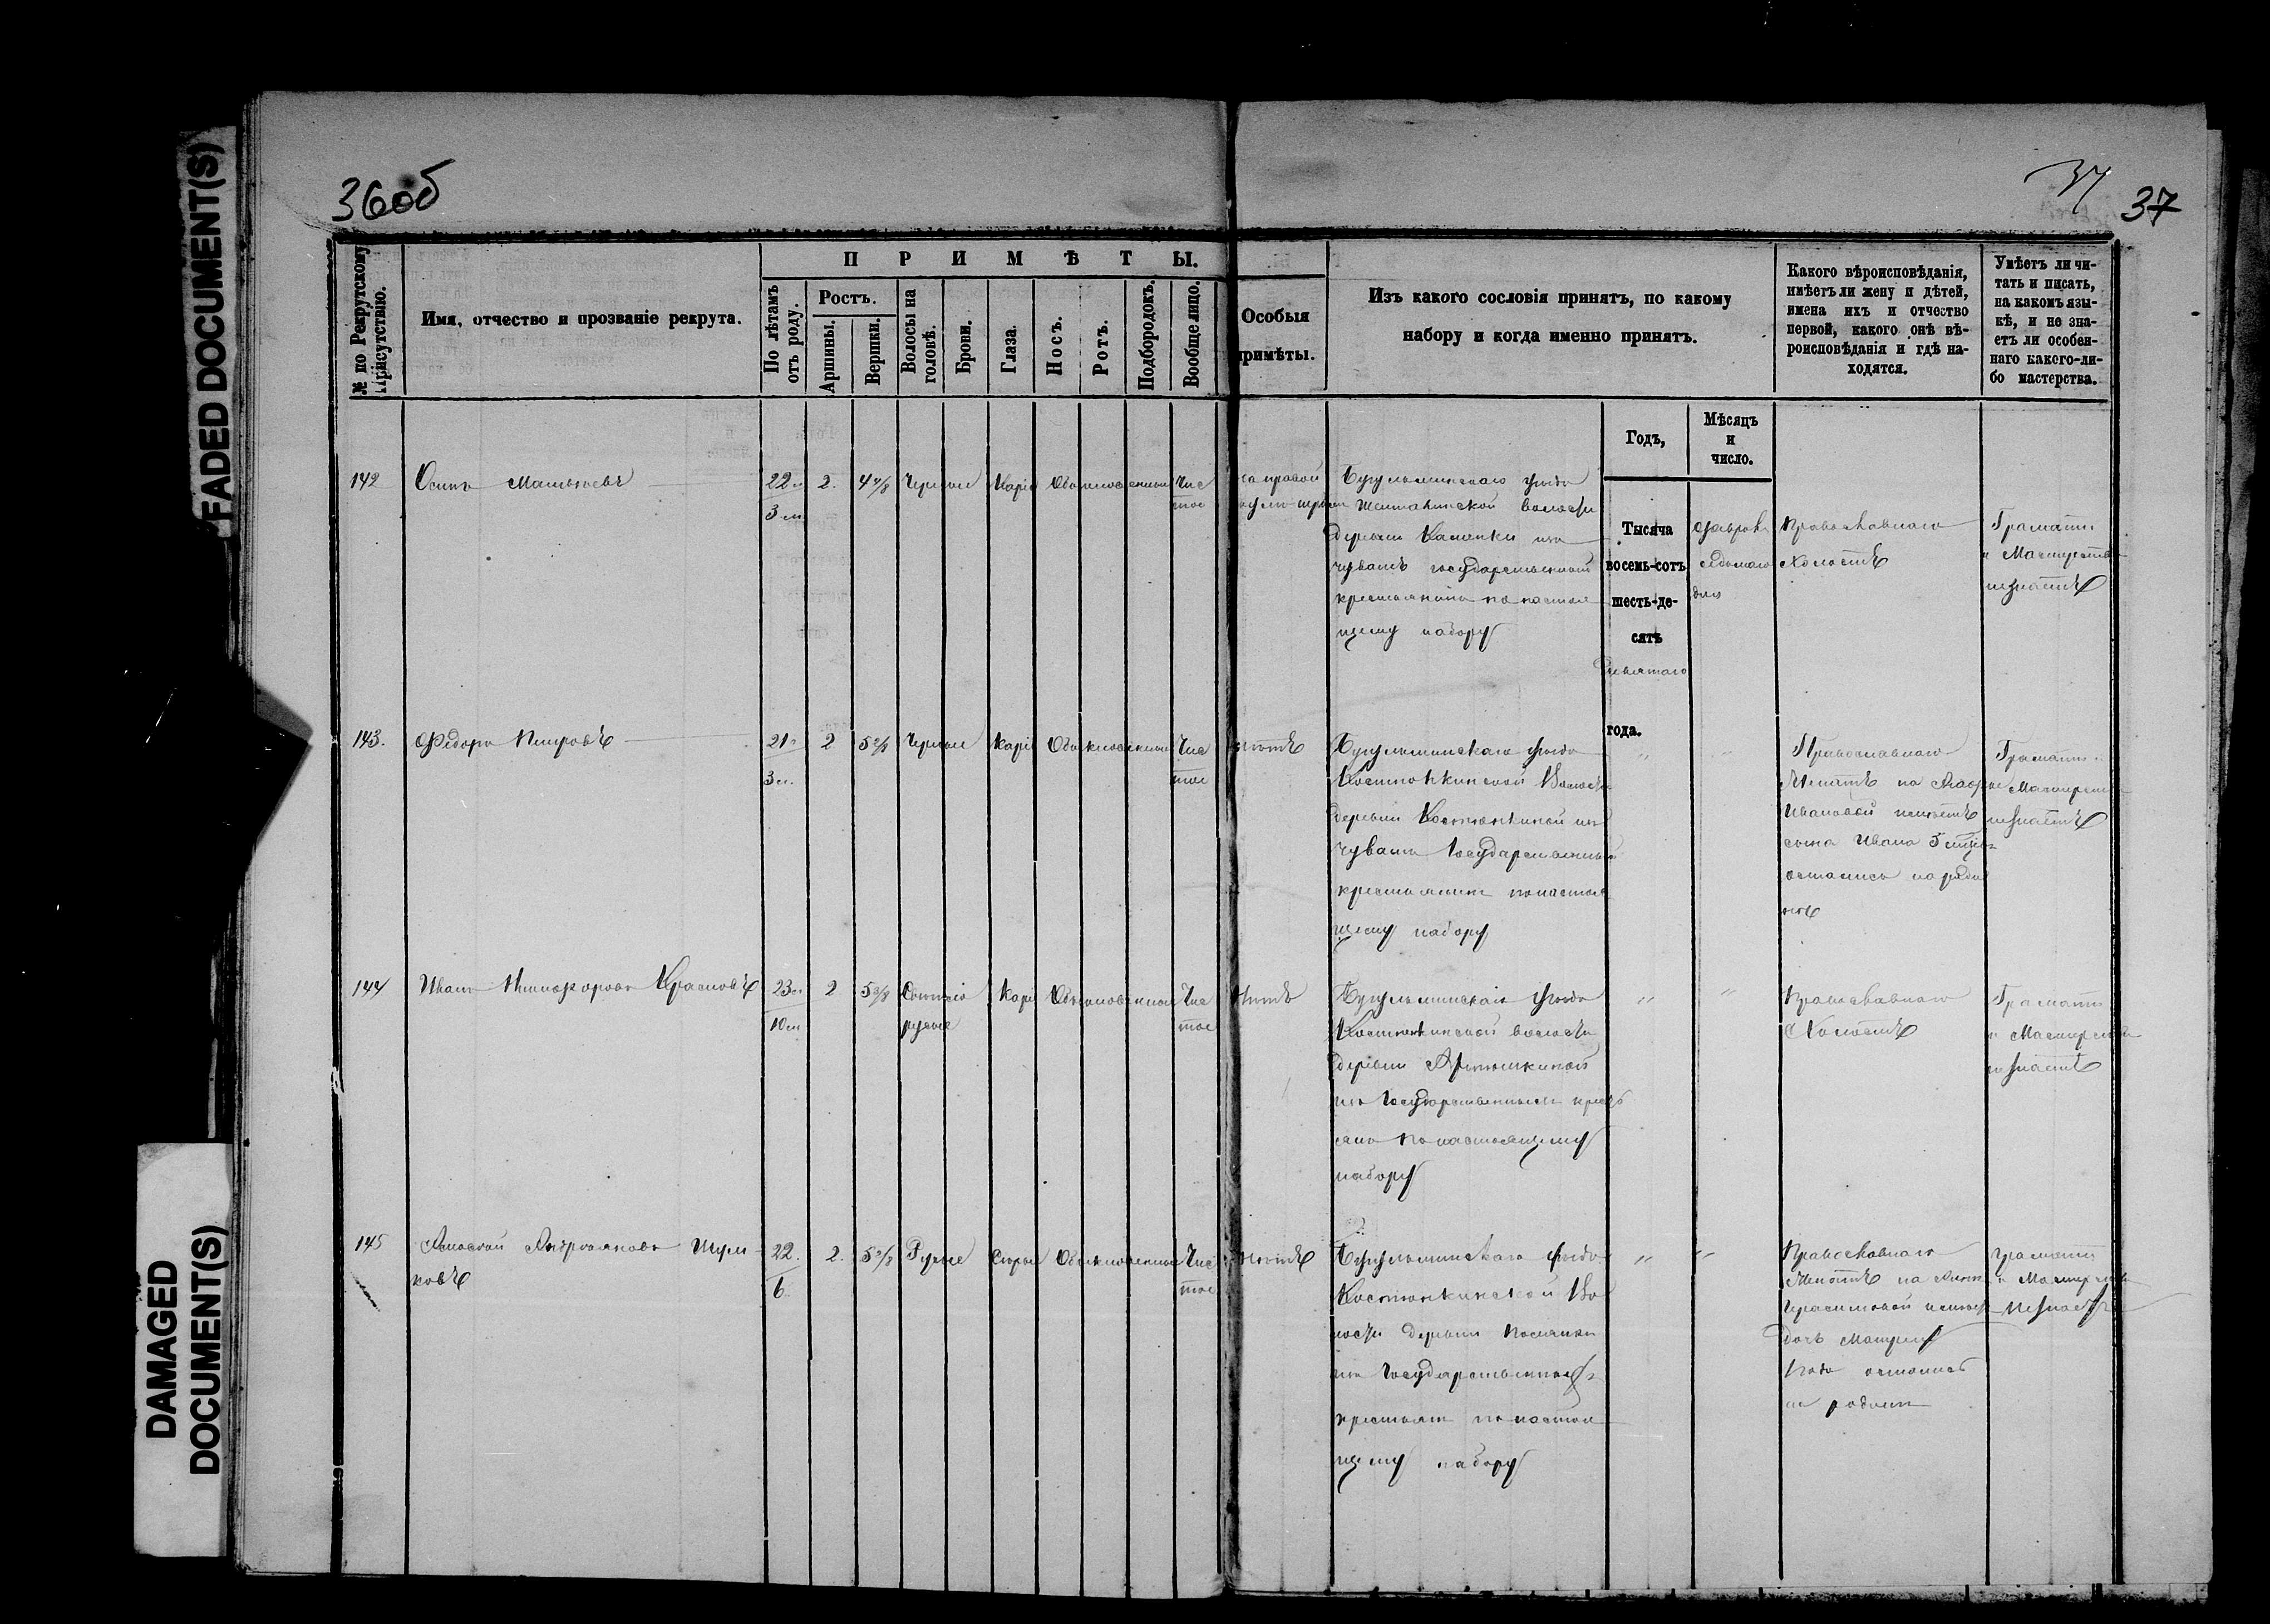 FADED DOCUMENT(S)
DAMAGED
DOCUMENT(S)
36об
37
37
№ по Рекрутскому Присутствію.
Имя, отчество и прозваніе рекрута.
ПРИМѢТЫ.
По лѣтамъ отъ роду.
Ростъ.
Аршины.
Вершки.
Волосы на головѣ.
Брови.
Глаза.
Носъ.
Ротъ.
Подбородокъ.
Вообще лицо.
Особыя
примѣты.
Изъ какого сословія принятъ, по какому
набору и когда именно принятъ.
Какого вѣроисповѣданія,
имѣетъ ли жену и дѣтей,
имена ихъ и отчество
первой, какого онѣ вѣ-
роисповѣданія и гдѣ на-
ходятся.
Умѣетъ ли чи-
тать и писать,
на какомъ язы-
кѣ, и не зна-
етъ ли особен-
наго какого-ли-
бо мастерства.
Годъ,
Мѣсяцъ
и
число.
142
Осипъ Матвѣевъ
22
3 м
2.
4 4/8
Черные
Каріе
Обыкновенные
Чис
тое
на правой
Бугульминскаго уѣзда
волости
деревни Каменки изъ
чувашъ государственный
крестьянинъ по настоя
щему набору
Тысяча
восемь-сотъ
шесть-де-
сятъ
девятаго
года.
Февраля
седьмаго
дня
Православнаго
Холостъ
Грамоты
и Мастерства
незнаетъ
143.
Федоръ Петровъ
21
3 м.
2
Черные
Каріе
Обыкновенные
Чис
тое
Нѣтъ
Бугульминскаго уѣзда
Костюнкинской Волости
деревни Костюнкиной изъ
Чувашъ Государственный
крестьянинъ понастоя
щему набору
"
"
Православнаго
Женатъ на
Ивановой имѣетъ
сына Ивана
остались на роди
нѣ
Грамоты
Мастерства
незнаетъ
144
Иванъ Никифоровъ Красновъ
23
10 м
2
5 3/8
Свѣтло
русые
Каріе
Обыкновенные
Чис
тое
Нѣтъ
Бугульминскаго уѣзда
Костюнкинской волости
деревни Артюшкиной
изъ Государственныхъ кресть
янъ по настоящему
набору
"
"
Православнаго
Холостъ
Грамоты
и Мастерства
незнаетъ
145
Алексѣй Андрияновъ Шум
ковъ
22.
6
2.
5 2/8
Русые
Сѣрые
Обыкновенные
Чис
тое
Нѣтъ
Бугульминскаго уѣзда
Костюнкинской Во
лости деревни
изъ Государственныхъ
крестьянъ по настоя
щему набору
"
"
Православнаго
Женатъ на
Герасимовой имѣетъ
дочь Матрену
года остались
на родинѣ
грамоты
и Мастерства
Незнаетъ